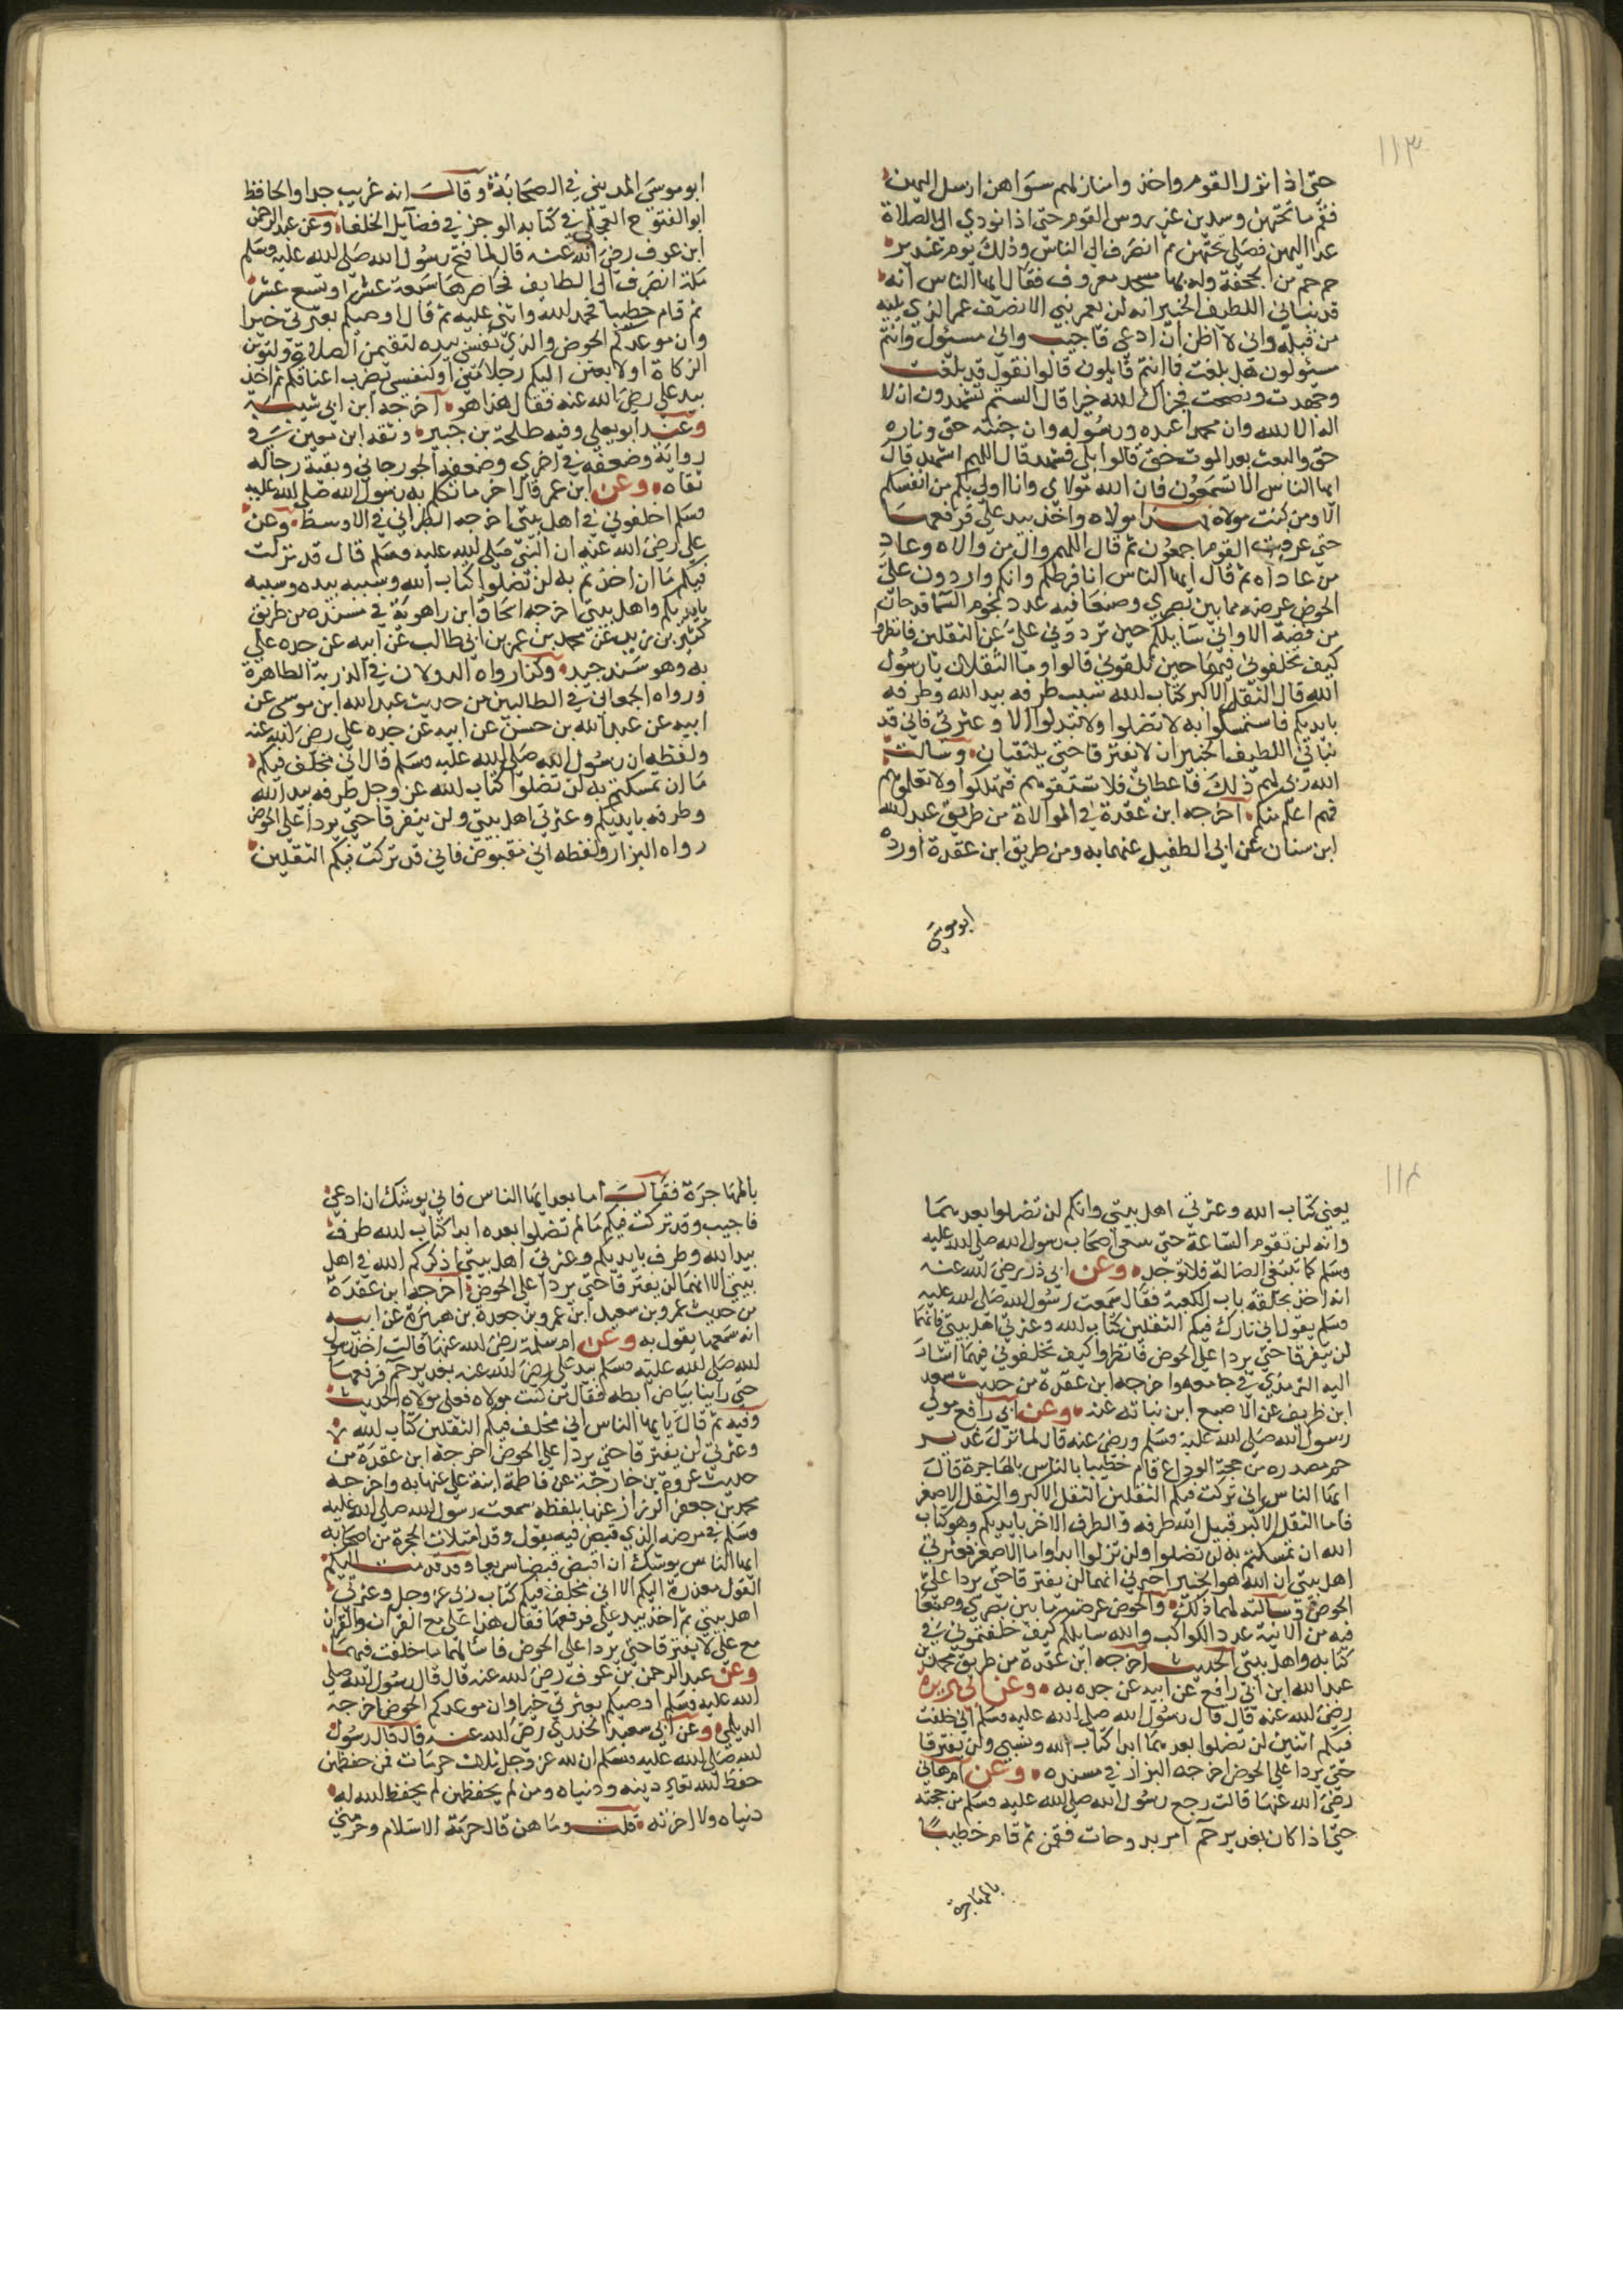 ١١٣
حتى اذا نزل القوم واخذوا منازلهم سوا هن ارسل اليهن
فقم ما تحتهن وسدبن عن روس القوم حتى اذا نودي الى الصلاة
عدا اليهن فصلى تحتهن ثم انصرف الى الناس وذلك يوم غدير
خم خم من الجحفة وله بها مسجد معروف فقال ايها الناس انه
قد نباني اللطيف الخبير انه لن يعمر نبي الا نصف عمر الذي يليه
من قبله واني لا اظن ان ادعى فاجيب واني مسئول وانتم
مسئولون هل بلغت فما انتم قايلون قالوا نقول قد بلغت
وجهدت ونصحت فجزاك الله خيرا قال الستم تشهدون ان لا
اله الا الله وان محمدا عبده ورسوله وان جنته حق وناره
حق والبعث بعد الموت حق قالوا بلى نشهد قال اللهم اشهد قال
ايها الناس الا تسمعون فان الله مولاي وانا اولى بكم من انفسكم
الا ومن كنت مولاه فهذا مولاه واخذ بيد علي فرفعها
حتى عرفه القوم اجمعون ثم قال اللهم وال من والاه وعاد
من عاداه ثم قال ايها الناس انا فرطكم وانكم واردون علي
الحوض عرضه مما بين بصرى وصنعا فيه عدد نجوم السما قدحان
من فضة الا واني سايلكم حين تردون علي عن الثقلين فانظروا
كيف تخلفوني فيهما حين تلقوني قالوا وما الثقلان يا رسول
الله قال الثقل الاكبر كتاب الله سبب طرفه بيد الله وطرفه
بايديكم فاستمسكوا به لا تضلوا ولا تبدلوا الا وعترتي فاني قد
نباني اللطيف الخبير ان لا يفترقا حتى يلتقيان وسالت
الله ربي لهم ذلك فاعطاني فلا تسبقوهم فتهلكوا ولا تعلموهم
فهم اعلم منكم اخرجه ابن عقدة في الموالاة من طريق عبد الله
ابن سنان عن ابي الطفيل عنهما به ومن طريق ابن عقدة اورده
ابوموسى
ابو موسى المديني في الصحابة وقال انه غريب جدا والحافظ
ابو الفتوح العجلي في كتابه الموجز في فضايل الخلفا وعن عبد الرحمن
ابن عوف رضي الله عنه قال لما فتح رسول الله صلى الله عليه وسلم
مكة انصرف الى الطايف فحاصرها سبعة عشر او تسع عشر
ثم قام خطيبا فحمد الله واثنى عليه ثم قال اوصيكم بعترتي خيرا
وان موعدكم الحوض والذي نفسي بيده لتقيمن الصلاة ولتوتن
الزكاة او لابعثن اليكم رجلا مني او كنفسي يضرب اعناقكم ثم اخذ
بيد علي رضي الله عنه فقال هذا هو اخرجه ابن ابي شيبة
وعنه ابو يعلى وفيه طلحة بن جبير وثقه ابن معين في
رواية وضعفه في اخرى وضعفه الجورجاني وبقية رجاله
ثقاه وعن ابن عمر قال اخر ما تكلم به رسول الله صلى الله عليه
وسلم اخلفوني في اهل بيتي اخرجه الطبراني في الاوسط وعن
علي رضي الله عنه ان النبي صلى الله عليه وسلم قال قد تركت
فيكم ما ان اخذتم به لن تضلوا كتاب الله وسببه بيده وسببه
بايديكم واهل بيتي اخرجه اسحاق ابن راهوية في مسنده من طريق
كثير بن زيد عن محمد بن عمر بن ابي طالب عن ابيه عن جده علي
به وهو سند جيد وكذا رواه الدولابي في الذرية الطاهرة
ورواه الجعابي في الطالبيين من حديث عبد الله ابن موسى عن
ابيه عن عبد الله بن حسن عن ابيه عن جده علي رضي الله عنه
ولفظه ان رسول الله صلى الله عليه وسلم قال اني مخلف فيكم
ما ان تمسكتم به لن تضلوا كتاب الله عز وجل طرفه بيد الله
وطرفه بايديكم وعترتي اهل بيتي ولن يتفرقا حتى يردا علي الحوض
رواه البزار ولفظه اني مقبوض فاني قد تركت فيكم الثقلين
١١٤
يعني كتاب الله وعترتي اهل بيتي وانكم لن تضلوا بعدهما
وانه لن تقوم الساعة حتى يبتغى اصحاب رسول الله صلى الله عليه
وسلم كما تبتغى الضالة فلا توجد وعن ابي ذر رضي الله عنه
انه اخذ بحلقة باب الكعبة فقال سمعت رسول الله صلى الله عليه
وسلم يقول اني تارك فيكم الثقلين كتاب الله وعترتي اهل بيتي فانهما
لن يتفرقا حتى يردا علي الحوض فانظروا كيف تخلفوني فيهما اشار
اليه الترمذي في جامعه واخرجه ابن عقدة من حديث سعد
ابن ظريف عن الاصبغ ابن نباته عنه وعن ابي رافع مولى
رسول الله صلى الله عليه وسلم ورضي عنه قال لما نزل غدير
خم مصدره من حجة الوداع قام خطيبا بالناس بالهاجرة قال
ايها الناس اني تركت فيكم الثقلين الثقل الاكبر والثقل الاصغر
فاما الثقل الاكبر فبيد الله طرفه والطرف الاخر بايديكم وهو كتاب
الله ان تمسكتم به لن تضلوا ولن تزلوا ابدا واما الاصغر فعترتي
اهل بيتي ان الله هو الخبير اخبرني انهما لن يفترقا حتى يردا علي
الحوض وسالته لهما ذلك والحوض عرضه ما بين بصرى وصنعا
فيه من الانية عدد الكواكب والله سايلكم كيف خلفتموني في
كتابه واهل بيتي الحديث اخرجه ابن عقدة من طريق محمد بن
عبد الله ابن ابي رافع عن ابيه عن جده به وعن ابي هريرة
رضي الله عنه قال قال رسول الله صلى الله عليه وسلم اني خلفت
فيكم اثنين لن تضلوا بعدهما ابدا كتاب الله ونسبي ولن يفترقا
حتى يردا علي الحوض اخرجه البزار في مسنده وعن ام هاني
رضي الله عنها قالت رجع رسول الله صلى الله عليه وسلم من حجته
حتى اذا كان بغدير خم امر بدوحات فقمن ثم قام خطيبا
بالهاجرة
بالهاجرة فقال اما بعد ايها الناس فاني يوشك ان ادعى
فاجيب وقد تركت فيكم ما لم تضلوا بعده ابدا كتاب الله طرف
بيد الله وطرف بايديكم وعترتي اهل بيتي اذكركم الله في اهل
بيتي الا انهما لن يفترقا حتى يردا علي الحوض اخرجه ابن عقدة
من حديث عمرو بن سعيد ابن عمرو بن جعدة بن هبيرة عن ابيه
انه سمعها تقول به وعن ام سلمة رضي الله عنها قالت اخذ رسول
الله صلى الله عليه وسلم بيد علي رضي الله عنه بغدير خم فرفعها
حتى راينا بياض ابطه فقال من كنت مولاه فعلي مولاه الحديث
وفيه ثم قال يا ايها الناس اني مخلف فيكم الثقلين كتاب الله
وعترتي لن يفترقا حتى يردا علي الحوض اخرجه ابن عقدة من
حديث عروة بن خارجة عن فاطمة ابنة علي عنها به واخرجه
محمد بن جعفر الرزاز عنها بلفظ سمعت رسول الله صلى الله عليه
وسلم في مرضه الذي قبض فيه يقول وقد امتلات الحجرة من اصحابه
ايها الناس يوشك ان اقبض قبضا سريعا وقد قدمت اليكم
القول معذرة اليكم الا اني مخلف فيكم كتاب ربي عز وجل وعترتي
اهل بيتي ثم اخذ بيد علي فرفعها فقال هذا علي مع القران والقران
مع علي لا يفترقا حتى يردا علي الحوض فاسالهما ما خلفت فيهما
وعن عبد الرحمن بن عوف رضي الله عنه قال قال رسول الله صلى
الله عليه وسلم اوصيكم بعترتي خيرا وان موعدكم الحوض اخرجه
الديلمي وعن ابي سعيد الخدري رضي الله عنه قال قال رسول
الله صلى الله عليه وسلم ان لله عز وجل ثلاث حرمات فمن حفظهن
حفظ الله تعالى دينه ودنياه ومن لم يحفظهن لم يحفظ الله له
دنياه ولا اخرته قلت وما هن قال حرمة الاسلام وحرمتي